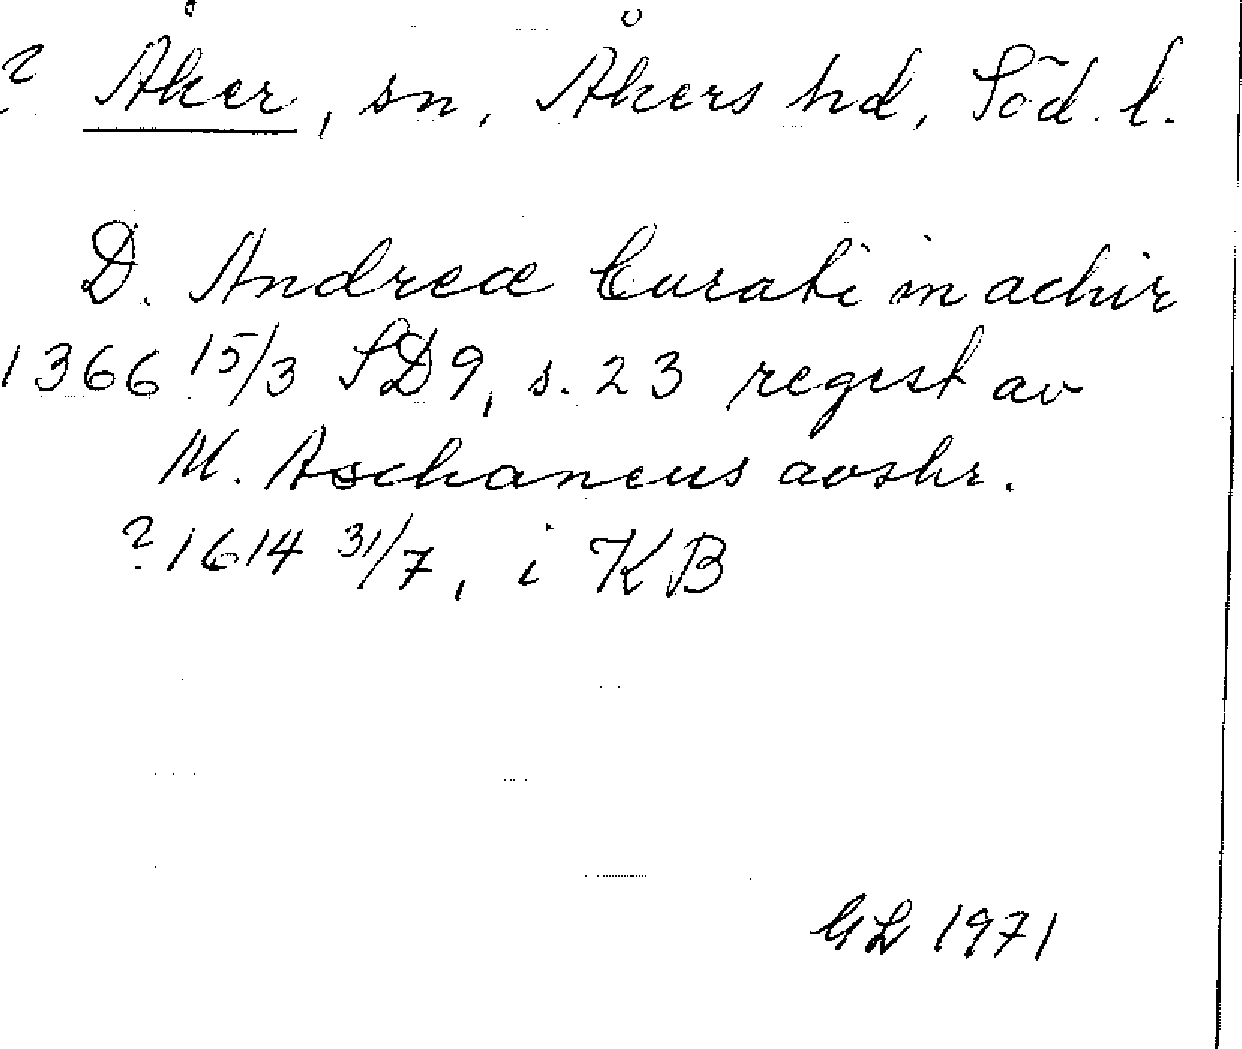 ? Åker, sn, Åkers hd, Söd. l.
D. Andreæ Curati in achir
1366 15/3 SD9, s. 23 regest av
M. Aschaneus avskr.
? 1614 31/7, i KB
GL 1971